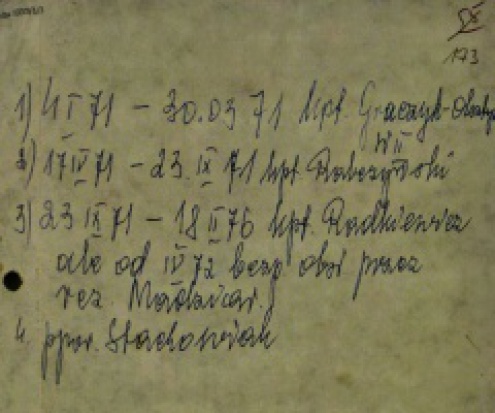 173
1) 4 I 71 – 30.03 71 kpt. Graczyk-
W II
2) 17 IV 71 – 23. IX 71 kpt.
3) 23 IX 71 – 18 II 76 kpt. Radkiewicz
ale od IV 72 bezp obsł przez
rez.
4. ppor. Stachowiak